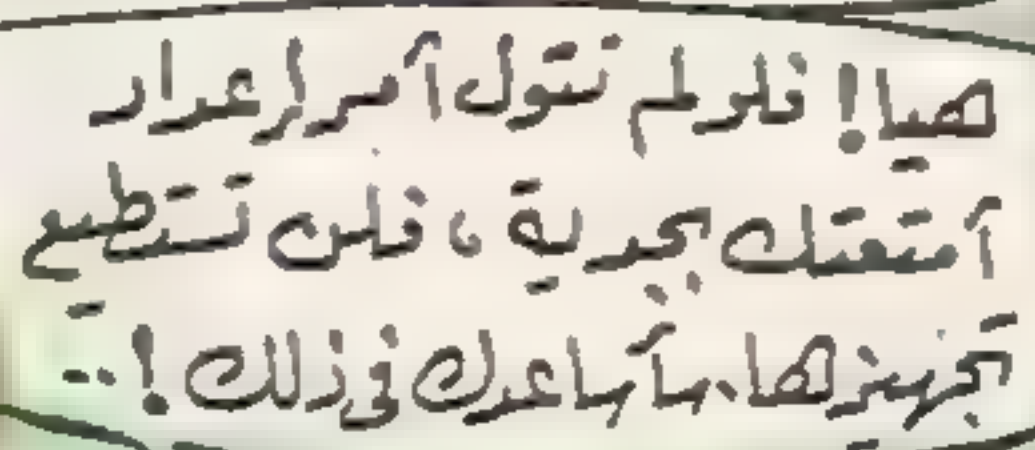 هيا! فلو لم تتول أمر إعداد
أمتعتك بجدية، فلن تستطيع
تجهيزها، سأساعدك فى ذلك!..